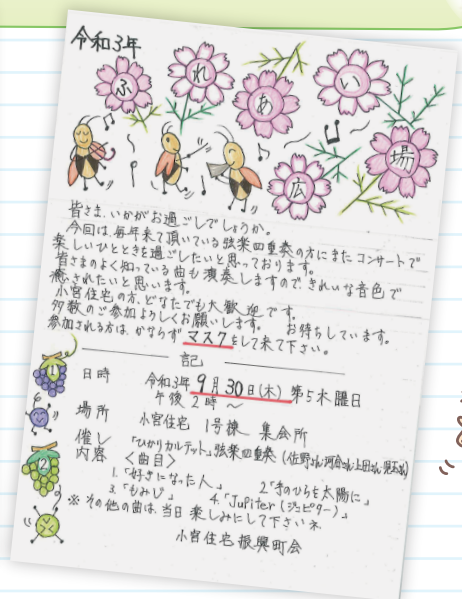 令和3年
ふれあい広場
皆さま、いかがお過ごしでしょうか。
今回は、毎年来て頂いている弦楽四重奏の方にまたコンサートで
楽しいひとときを過ごしたいと思っております。
皆さまのよく知っている曲も演奏しますので、きれいな音色で
癒されたいと思います。
小宮住宅の方、どなたでも大歓迎です。
多数のご参加よろしくお願いします。 お待ちしています。
参加される方は、かならずマスクをして来て下さい。
記
1
日時 令和3年9月30日(木)第5木曜日
午後2時〜
場所 小宮住宅 1号棟 集会所
催し 「ひかりカルテット」弦楽四重奏(佐野さん・河合さん・上田さん・児玉さん)
2
内容 〈曲目〉
1.「好きになった人」 2.「手のひらを太陽に」
3.「もみじ」 4.「Jupiter(ジュピター)」
※その他の曲は、当日楽しみにして下さいネ
小宮住宅振興町会